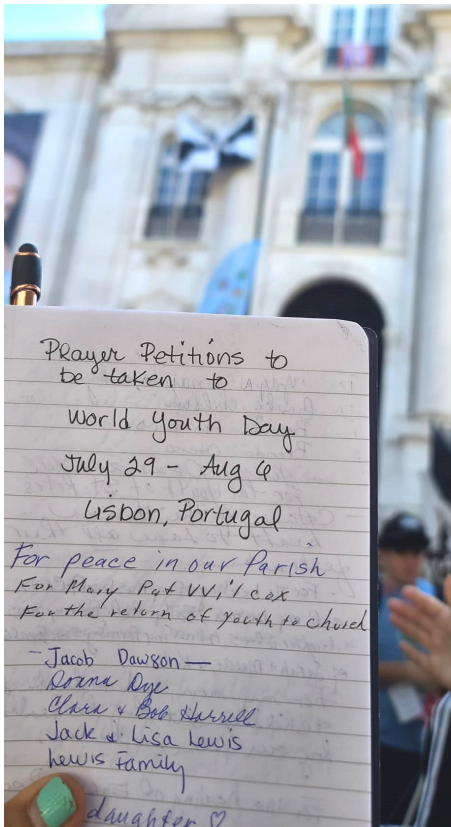 Prayer Petitions to
be taken to
World Youth Day
July 29 - Aug 6
Lisbon, Portugal
For peace in our Parish
For Mary Pat Wilcox
For the return of youth to church
- Jacob Dawson —
Donna Dye
Clara & Bob Harrell
Jack & Lisa Lewis
Lewis Family
daughter ♡